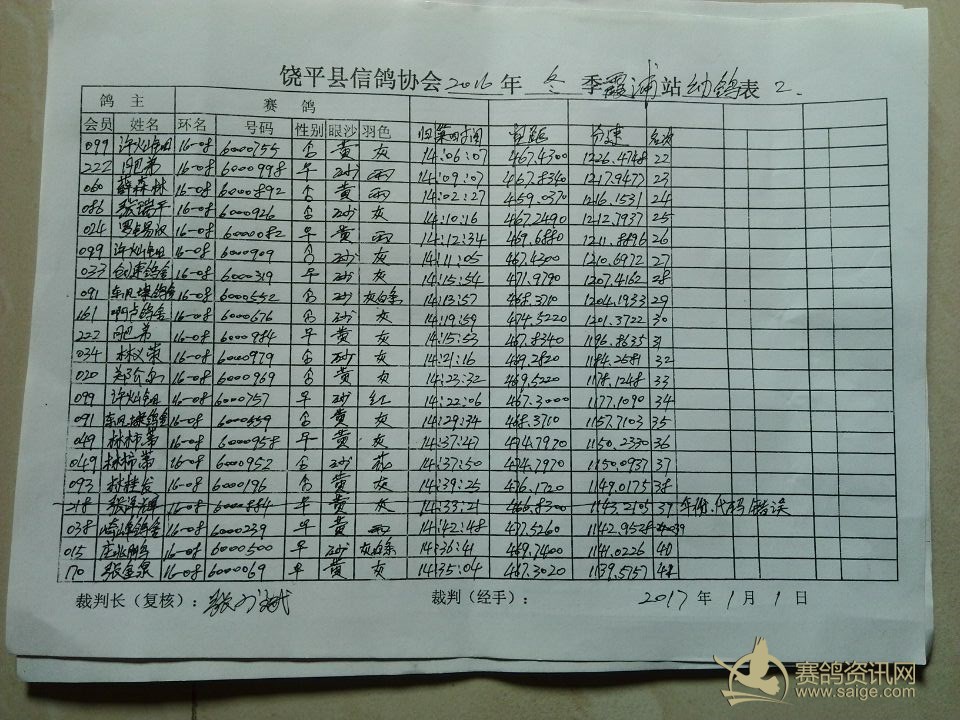 饶平县信鸽协会2016年 冬 季霞浦站幼鸽表 2.
鸽 主 赛 鸽
会员 姓名 环名 号码 性别 眼沙 羽色 归巢时间 空距 分速 名次
099 16-08 6000755 黄 灰 14:06:07 467.4300 1226.4748 22
222 阿肥弟 16-08 6000998 砂 雨 14:09:07 467.8340 1217.9477 23
060 薛森林 16-08 6000892 黄 雨 14:02:27 459.0370 1216.1531 24
086 张瑞平 16-08 6000926 砂 灰 14:10:16 467.2490 1212.7937 25
024 16-08 6000082 黄 雨 14:12:34 469.6880 1211.8896 26
099 16-08 6000909 砂 灰 14:11:05 467.4300 1210.6972 27
033 16-08 6000319 砂 灰 14:15:54 471.9790 1207.4162 28
091 16-08 6000552 砂 灰白条 14:13:57 468.3710 1204.1933 29
161 16-08 6000676 砂 灰 14:19:59 474.5220 1201.3722 30
222 阿肥弟 16-08 6000984 黄 灰 14:15:53 467.8340 1196.8635 31
034 林义荣 16-08 6000979 砂 灰 14:21:16 469.2820 1184.2581 32
020 16-08 6000969 黄 灰 14:23:32 469.5220 1178.1248 33
099 16-08 6000757 砂 红 14:22:06 467.3000 1177.1090 34
091 16-08 6000559 黄 灰 14:29:34 468.3710 1157.7103 35
049 林柿第 16-08 6000958 黄 灰 14:37:47 474.7970 1150.2330 36
049 林柿第 16-08 6000952 砂 花 14:37:50 474.7970 1150.0937 37
093 16-08 6000196 黄 灰 14:39:25 476.1720 1149.0175 38
218 16-08 6000884 黄 灰 14:33:21 466.8300 1143.2105 37 年份.代码错误
038 16-08 6000239 黄 雨 14:42:48 477.5260 1142.9528 39
015 16-08 6000500 砂 灰白条 14:36:41 469.7400 1141.0226 40
170 张金泉 16-08 6000069 黄 灰 14:35:04 467.3020 1139.5757 41
裁判长（复核）： 裁判（经手）： 2017 年 1 月 1 日
赛鸽资讯网
www.saige.com